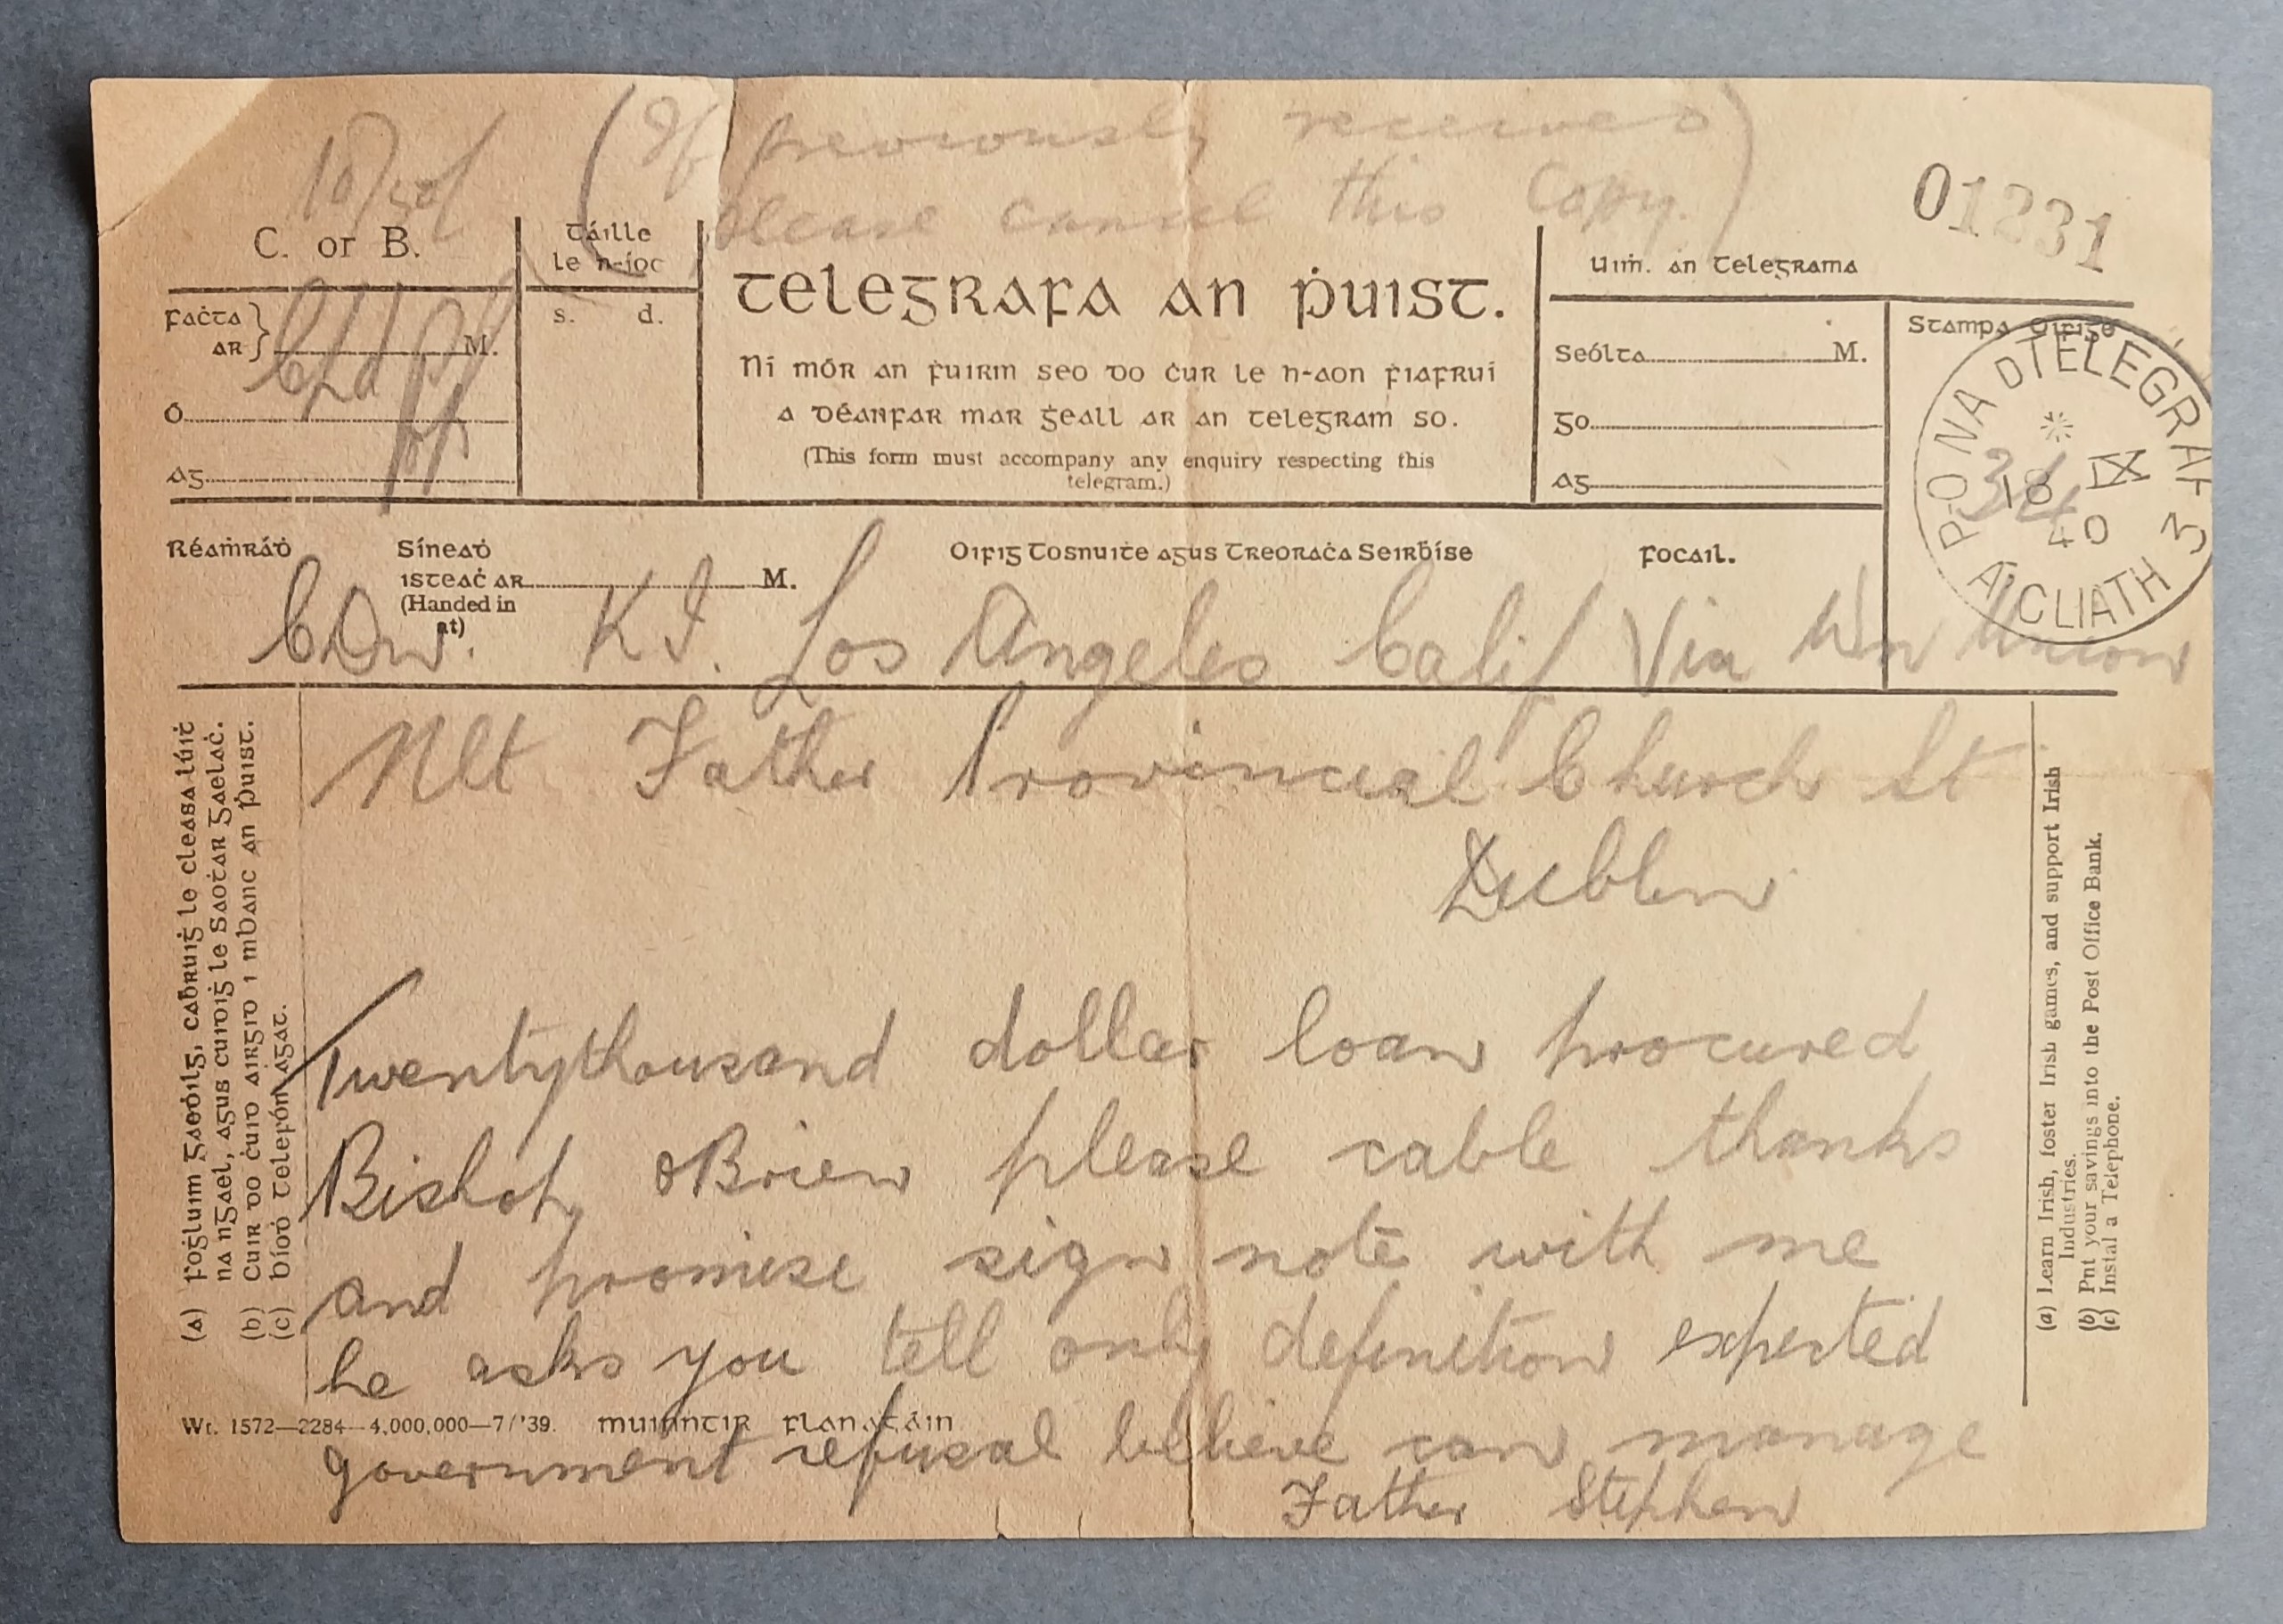 (If previously received
please cancel this Copy.)
01231
C. or B.
Táille
le n-íoc
Telegrafa an Ṗuist.
Uiṁ. an Telegrama
Faċta
ar } M.
s. d.
Ó
Ag
Ní mór an ḟuirm seo do ċur le h-aon ḟiafruí
a déanfar mar ġeall ar an telegram so.
(This form must accompany any enquiry respecting this
telegram.)
Seólta M.
Go
Ag
Stampa Oifige
P.O NA DTELEGRAF 3
18 IX
40
A'CLIATH
Réaṁráḋ
Síneaḋ
isteaċ ar M.
(Handed in
at)
Oifig Tosnuiṫe agus Treoraċa Seirḃíse
Focail.
CDW. KI. Los Angeles Calif Via Wn Union
Nlt Father Provincial Church St
Dublin
Twentythousand dollar loan procured
Bishop oBrien please cable thanks
and promise sign note with me
he asks you tell only definition experted
government refusal believe can manage
Father Stephen
(a) Foġluim Gaeḋilg, caḃruiġ le cleasa lúiṫ
na nGael, agus cuidiġ le Saoṫar Gaelaċ.
(b) Cuir do ċuid airgid i mBanc an Ṗuist.
(c) Bíoḋ Telefón agat.
(a) Learn Irish, foster Irish games, and support Irish
Industries.
(b) Put your savings into the Post Office Bank.
(c) Instal a Telephone.
Wt. 1572—2284—4,000,000—7/'39. Muinntir Flanagáin